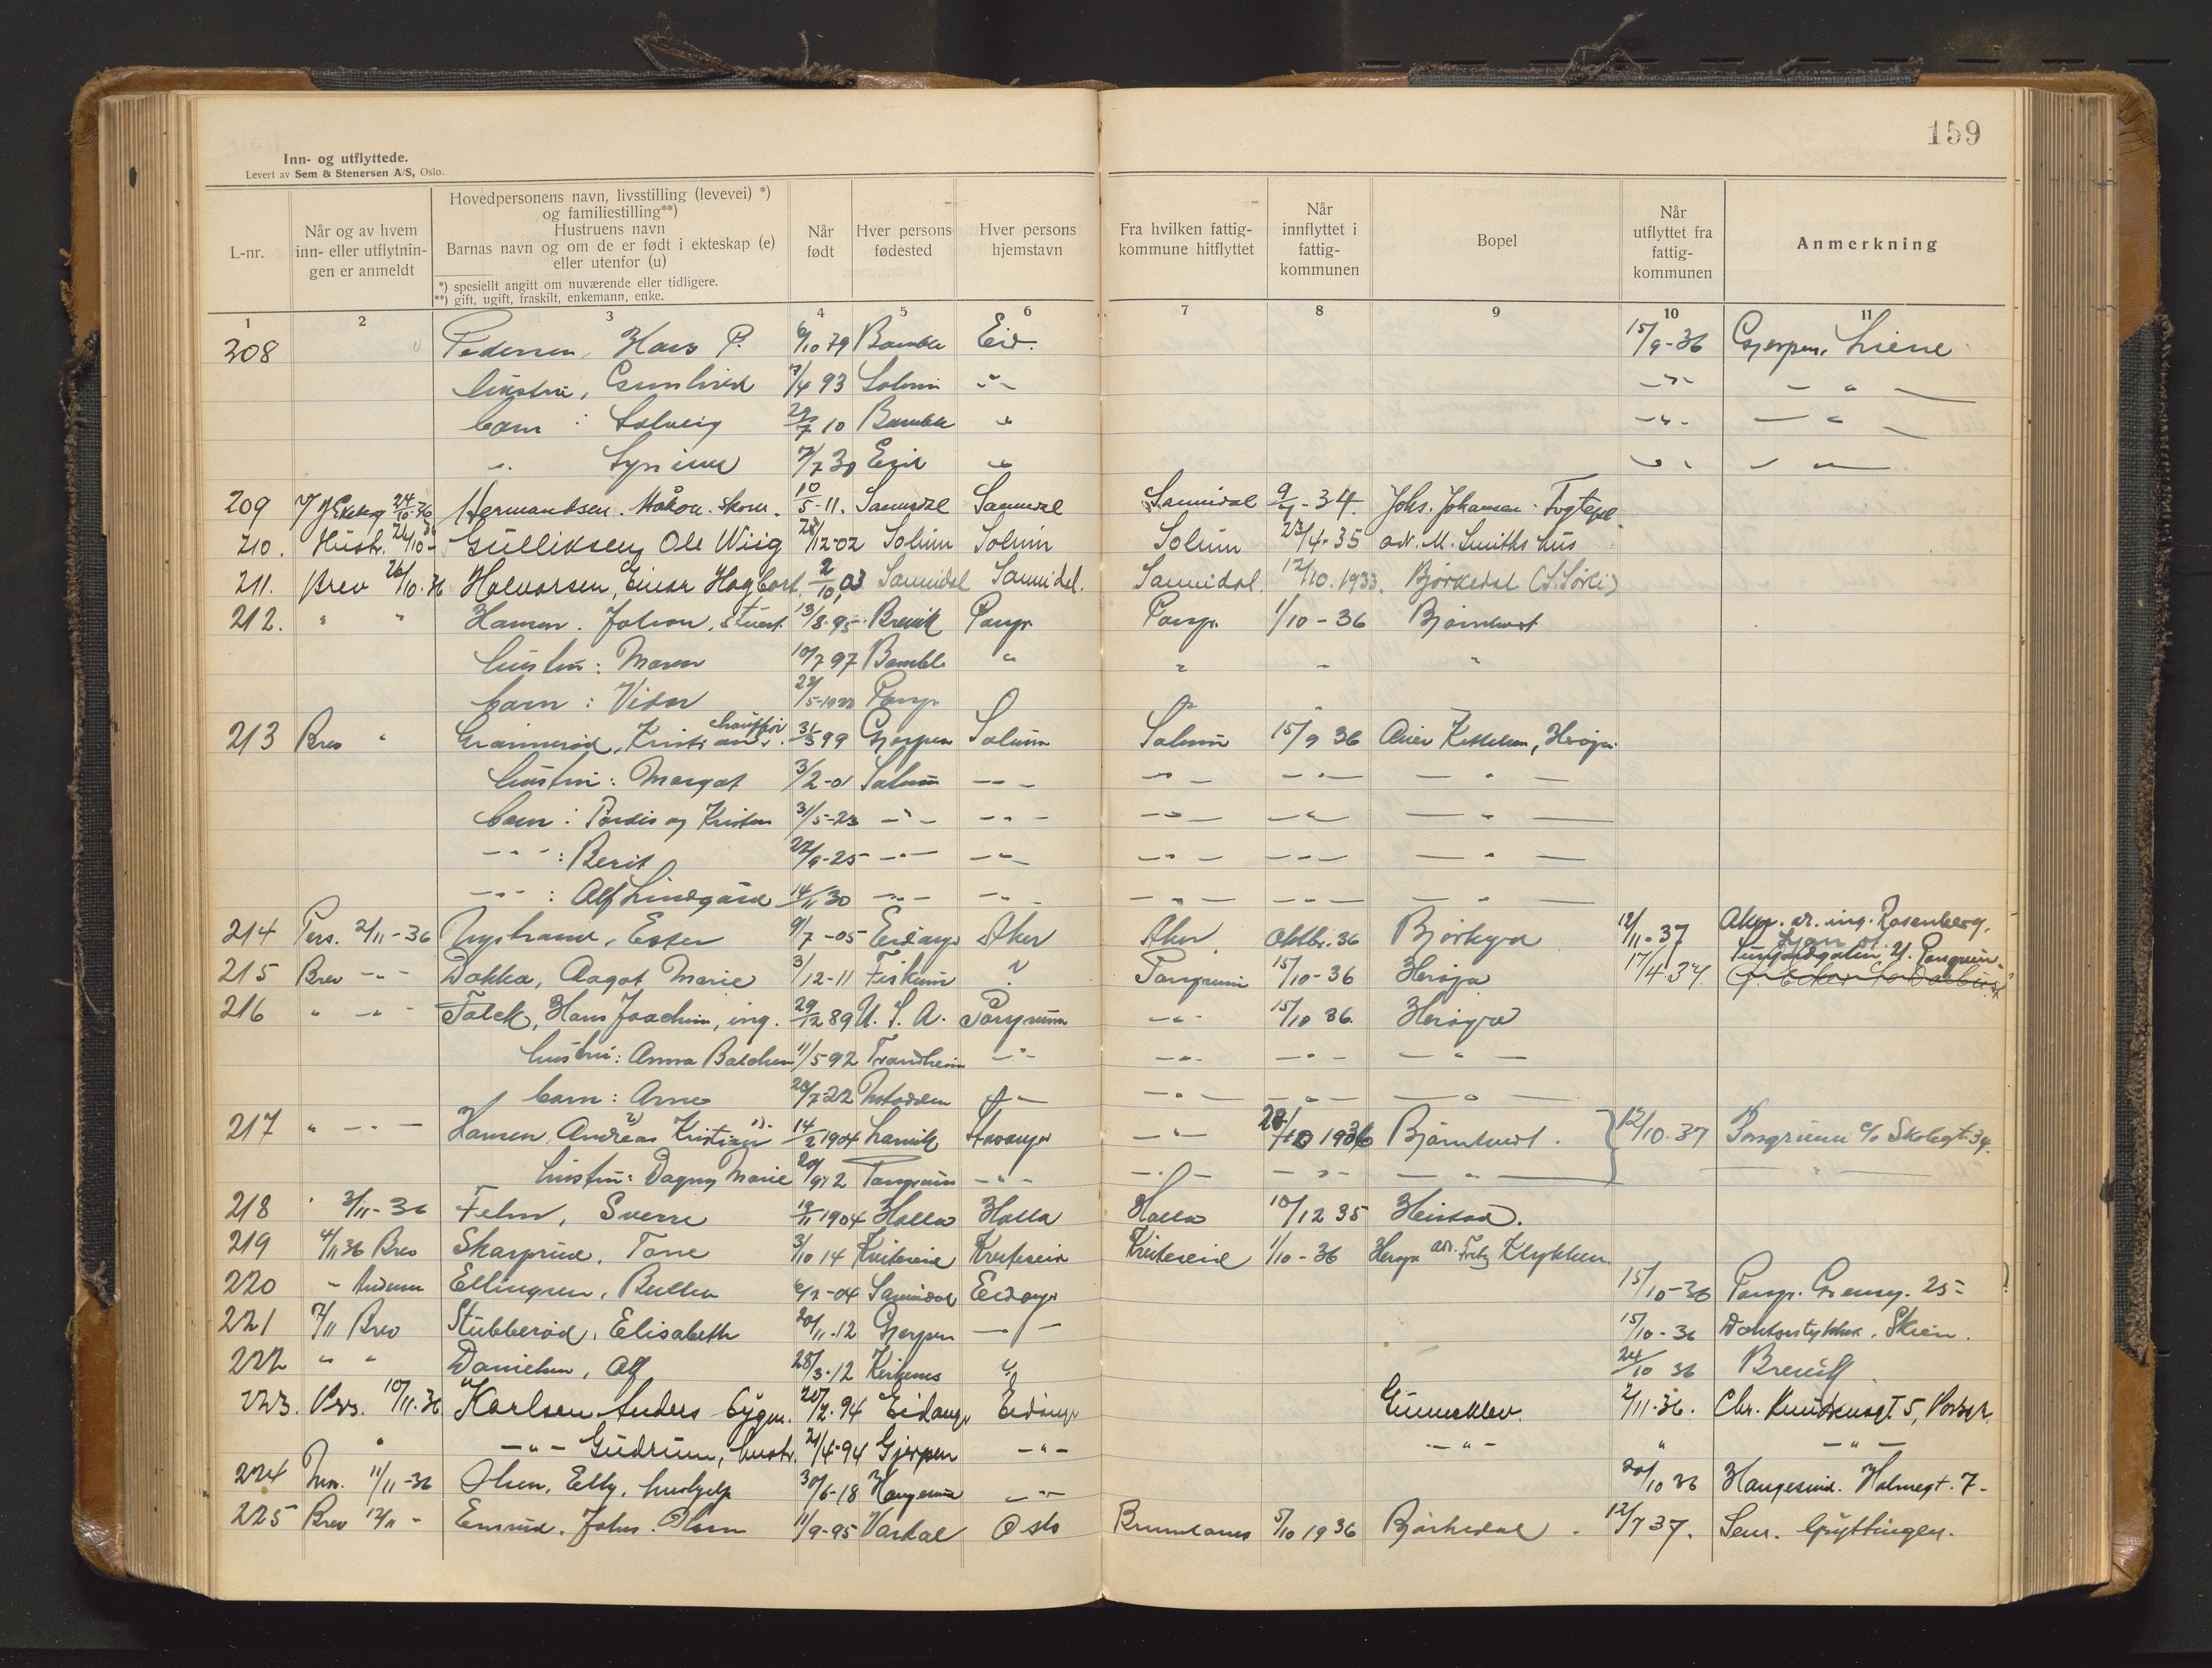 159
Inn- og utflyttede.
Levert av Sem & Stenersen A/S, Oslo.
L-nr.
Når og av hvem inn- eller utflytnin-gen er anmeldt
Hovedpersonens navn, livsstilling (levevei) *) og familiestilling**)
Hustruens navn
Barnas navn og om de er født i ekteskap (e) eller utenfor (u)
*) spesiellt angitt om nuværende eller tidligere.
**) gift, ugift, fraskilt, enkemann, enke.
Når født
Hver persons fødested
Hver persons hjemstavn
Fra hvilken fattig-kommune hitflyttet
Når innflyttet i fattig-kommunen
Bopel
Når utflyttet fra fattig-kommunen
Anmerkning
1 2 3 4 5 6 7 8 9 10 11
208 Pedersen, Hans P. 6/10 79 Bamble Eid. 15/9-36 Gjerpen,
hustru, Gunhild 7/4 93 Solum -"- -"- - " -
barn : Solveig 29/7 10 Bamble " -"- - " -
". 7/7 30 Eid " " - " -
209 24/10-36 Hermandsen. Håkon. 10/5-11. Sannidal Sannidal Sannidal -34. Johs. Johansen
210. Hustr. 24/10-36 Gulliksen, Ole Wiig 28/12-02 Solum Solum Solum 23/4-35 adr. M. Smiths hus
211. Brev 26/10.36 Halvorsen, Einar Hagbart, 2/10 03 Sannidal Sannidal. Sannidal. 12/10.1933. Bjørkedal (S. Sørli)
212. " " Hansen. Johan, 13/8.95 Brevik Porsgr. Porsgr. 1/10-36 Bjørntvedt
hustru: Maren 10/7 97 Bamble " " - "
barn : Vidar 23/5-1922 Porsgr. "
213 Brev " Grannerød, Kristian, chauffør 31/3 99 Gjerpen Solum Solum 15/9 36 Kittilsen, Herøya
hustru: Margot 3/2-01 Solum -"- -"- -"- - " -
barn : Tordis og Kristen 31/5-23 -"- -"- -"- -"- - " -
-"-: Berit 22/9-25 -"- -"- -"- -"- - " -
-"-: Alf Lindgård 14/11 30 -"- -"- -"- -"- - " -
214 Pers. 2/11-36 Nystrand, Ester 9/7-05 Eidanger Aker Aker Oktbr. 36 12/11-37 Aker. adr. ing. Rosenberg,
215 Brev -"- Dokka, Aagot Marie 3/12-11 Fiskum ? Porsgrunn 15/10-36 Herøya 17/4-37. Porsgrunn.
216 " -"- Falck, Hans Joachim, ing. 29/12 89 U. S. A. Porsgrunn -"- 15/10 36. Herøya
hustru: Anna Balchen 11/5-92 Trondheim -"- -"- -"- - " -
barn: Arne 28/7-22 Notodden -"- -"- -"- - " -
217 " -"- Hansen, Andreas Kristian 14/2 1904 Larvik Stavanger -"- 28/10 1936 Bjørntvedt. 12/10.37 Porsgrunn c/o Skolegt. 34.
hustru: Dagny Marie 20/9 12 Porsgrunn -"- -"- -"- - " - - " -
218 " 3/11-36 Fehn, Sverre 1904 Holla Holla Holla 10/12 35 Heistad.
219 4/11 36 Brev Skarprud, Tone 3/10 14 Kviteseid Kviteseid Kviteseid 1/10-36 Herøya adr. Fritz Klykken
220 " Andersen Ellingsen, 6/2-04 Sannidal Eidanger 15/10-36 Porsgr. 25-
221 7/11 Brev Stubberød, Elisabeth 20/11-12 Gjerpen -"- 15/10-36 Skien.
222 " " Danielsen, Alf 28/3-12 Kirkenes " 24/10 36 Brevik
223. Pers. 10/11.36 Karlsen Anders bygn. 20/2.94 Eidanger Eidanger Gunneklev. 2/11-36. Chr. Knudsensgt 5, Porsgr.
" -"- Gudrun, hustr. 21/4-94 Gjerpen -"- -"- " -"-
224 11/11-36 Olsen, Elly, hushjelp 30/6-18 Haugesund -"- 20/10 36 Haugesund. Holmegt. 7-
225 Brev 12/11 - Emrud. Johs. Olsen 11/9-95 Vardal Oslo Brunlanes 5/10 1936 Bjørkedal. 12/7 37. Sem.